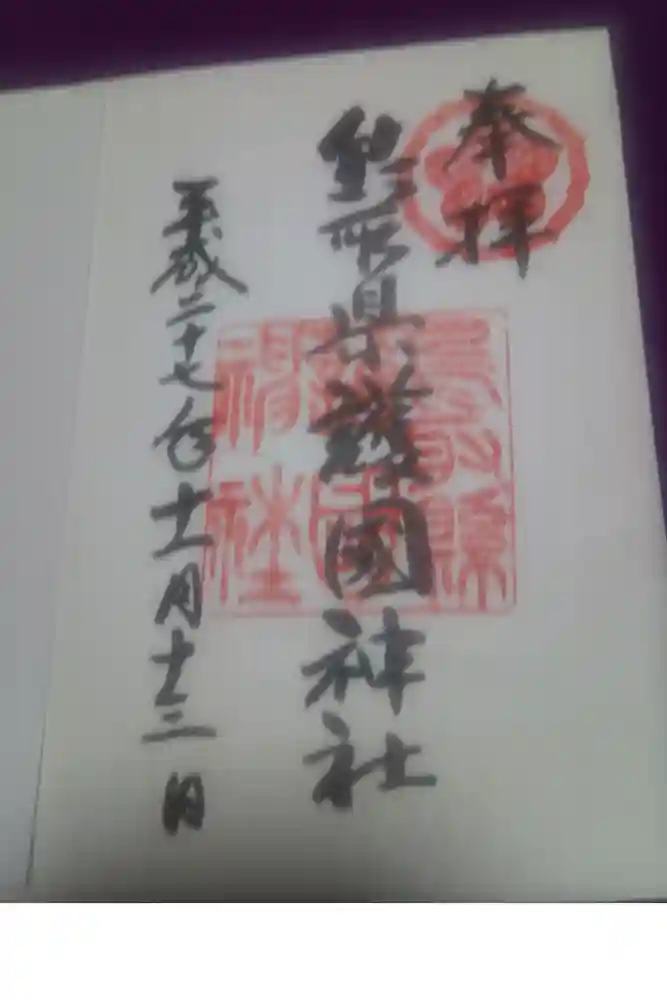 奉拝
鳥取県護國神社
平成二十七年十一月十三日
鳥取縣
護國
神社